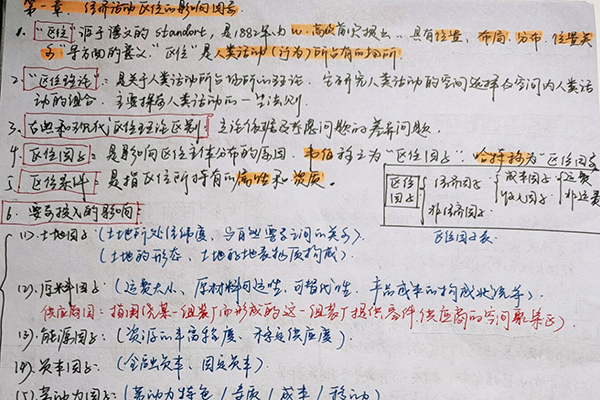 第一章 经济活动区位的影响因素
1. "区位"源于德文的 standort, 是1882年由W.高次首次提出. 具有位置、布局、分布、位置关
系"等方面的意义. "区位"是人类活动(行为)所占有的场所
2. "区位理论": 是关于人类活动所占场所的理论. 它研究人类活动的空间选择及空间内人类活
动的组合. 主要探索人类活动的一般法则.
3. 古典和现代区位理论区别: 立论依据及考虑问题的差异问题.
4. 区位因子: 是影响区位主体分布的原因. 韦伯称之为"区位因子". 哈特称为"区位因素
5. 区位条件: 是指区位所持有的属性和资质.
区位因子 经济因子 成本因子 运费 非运费
收入因子
非经济因子
区位因子表
6. 要素投入的影响
(1). 土地因子: (土地所处经纬度, 与自然要素之间的关系)
(土地的形态, 土地的地表物质构成)
(2). 原料因子: (运费大小、原材料可运性, 可替代性, 产品成本的构成状况等).
供应商园: 指围绕某一组装厂而形成的这一组装厂提供零件, 供应商的空间聚集区)
(3). 能源因子: (资源的丰富程度、稳定供应度)
(4). 资本因子: (金融资本、固定资本)
(5). 劳动力因子: (劳动力特色/素质/成本/移动)